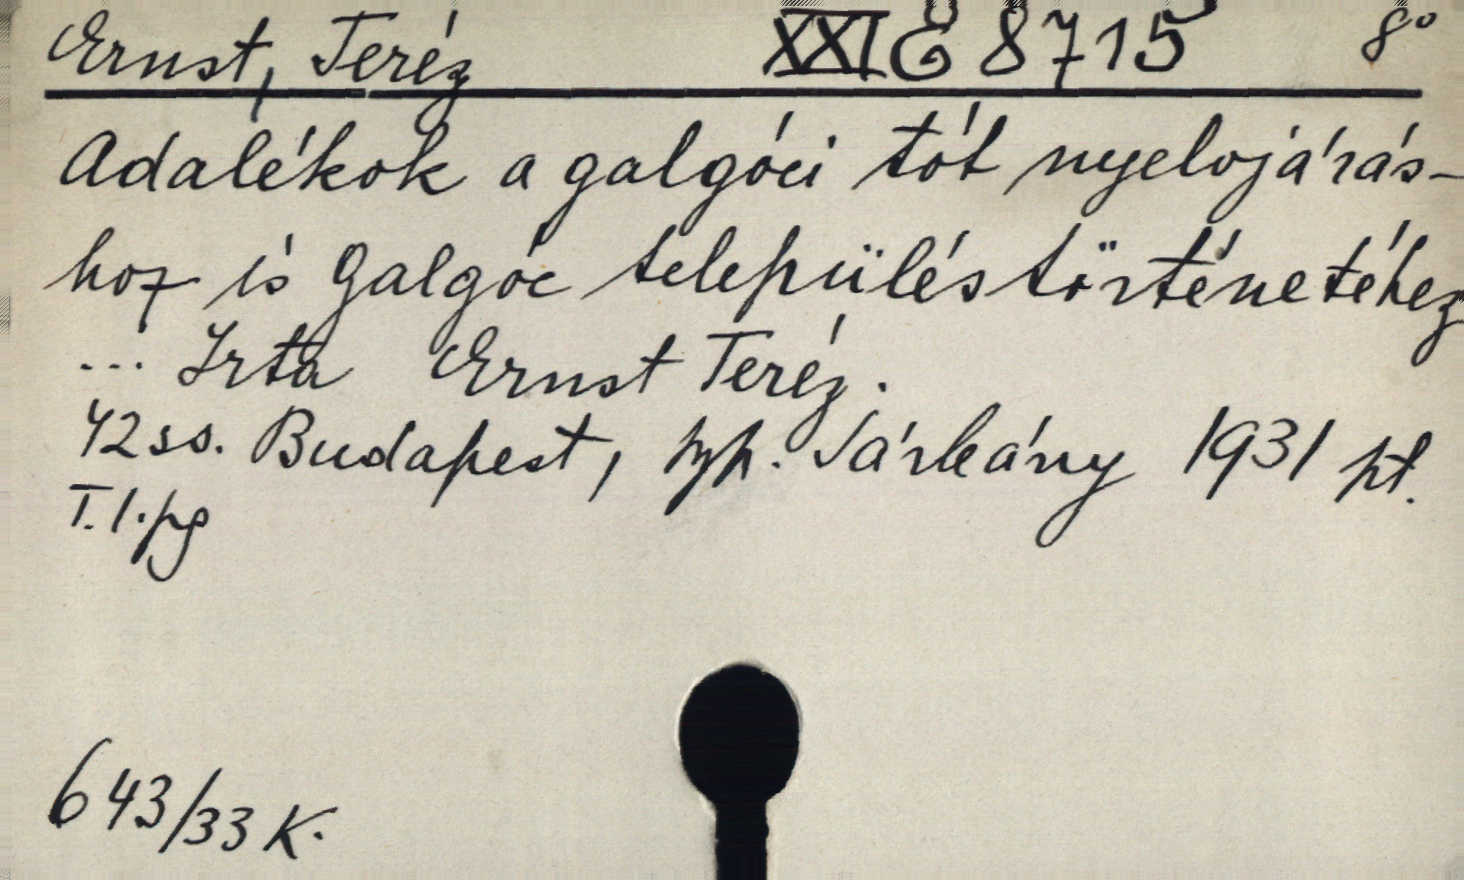 Ernst, Teréz XXI E 8715 8°
Adalékok a galgóci tót nyelvjárás-
hoz és Galgóc településtörténetéhez
... Irta Ernst Teréz.
42 ss. Budapest, typ. Sárkány 1931 pt.
T. 1. pg
643/33 K.